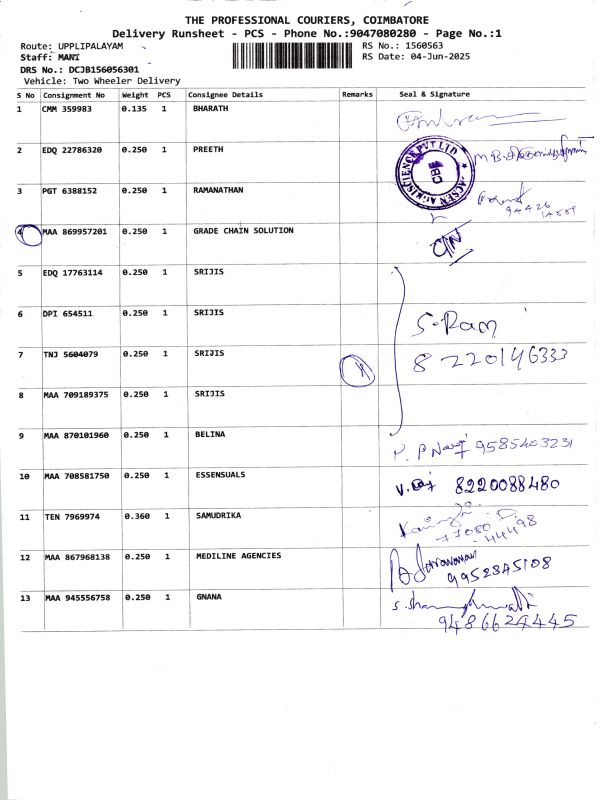 THE PROFESSIONAL COURIERS, COIMBATORE
Delivery Runsheet - PCS - Phone No.:9047080280 - Page No.:1
Route: UPPLIPALAYAM RS No.: 1560563
Staff: MANI RS Date: 04-Jun-2025
DRS No.: DCJB156056301
Vehicle: Two Wheeler Delivery
S No Consignment No Weight PCS Consignee Details Remarks Seal & Signature
1 CMM 359983 0.135 1 BHARATH
2 EDQ 22786320 0.250 1 PREETH
3 PGT 6388152 0.250 1 RAMANATHAN
4 MAA 869957201 0.250 1 GRADE CHAIN SOLUTION
5 EDQ 17763114 0.250 1 SRIJIS
6 DPI 654511 0.250 1 SRIJIS S.Ram
7 TNJ 5604079 0.250 1 SRIJIS 8220146333
8 MAA 709189375 0.250 1 SRIJIS
9 MAA 870101960 0.250 1 BELINA 9585403231
10 MAA 708581750 0.250 1 ESSENSUALS 8220088480
11 TEN 7969974 0.360 1 SAMUDRIKA
12 MAA 867968138 0.250 1 MEDILINE AGENCIES 9952345108
13 MAA 945556758 0.250 1 GNANA
9486624445